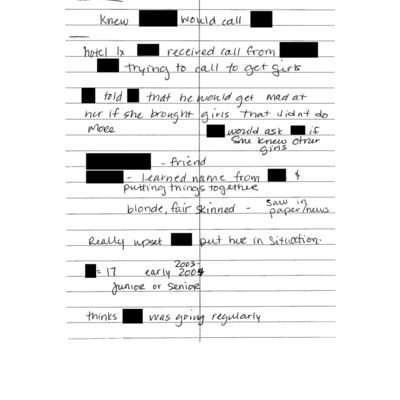 Knew would call
hotel 1x received call from
trying to call to get girls
told that he would get mad at
her if she brought girls that didn't do
more
would ask if
she knew other
girls
- friend
- learned name from &
putting things together
blonde, fair skinned - saw in
paper/news
Really upset put her in situation.
= 17 early 2003-
2004
junior or senior
thinks was going regularly